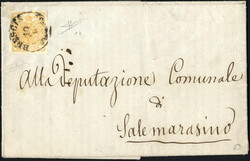 BRESCIA
Alla Deputazione Comunale
di
Sale Marasino